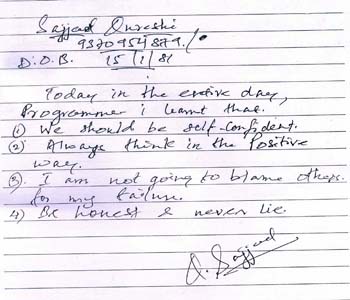 Sajjad Qureshi
9320954879./
D.O.B. 15/1/81
Today in the entire day,
Programmer i learnt that.
(1) We should be self-confident.
(2) Always think in the Positive
way.
(3). I am not going to blame others.
for my failure.
4) Be honest & never lie.
Q. Sajjad